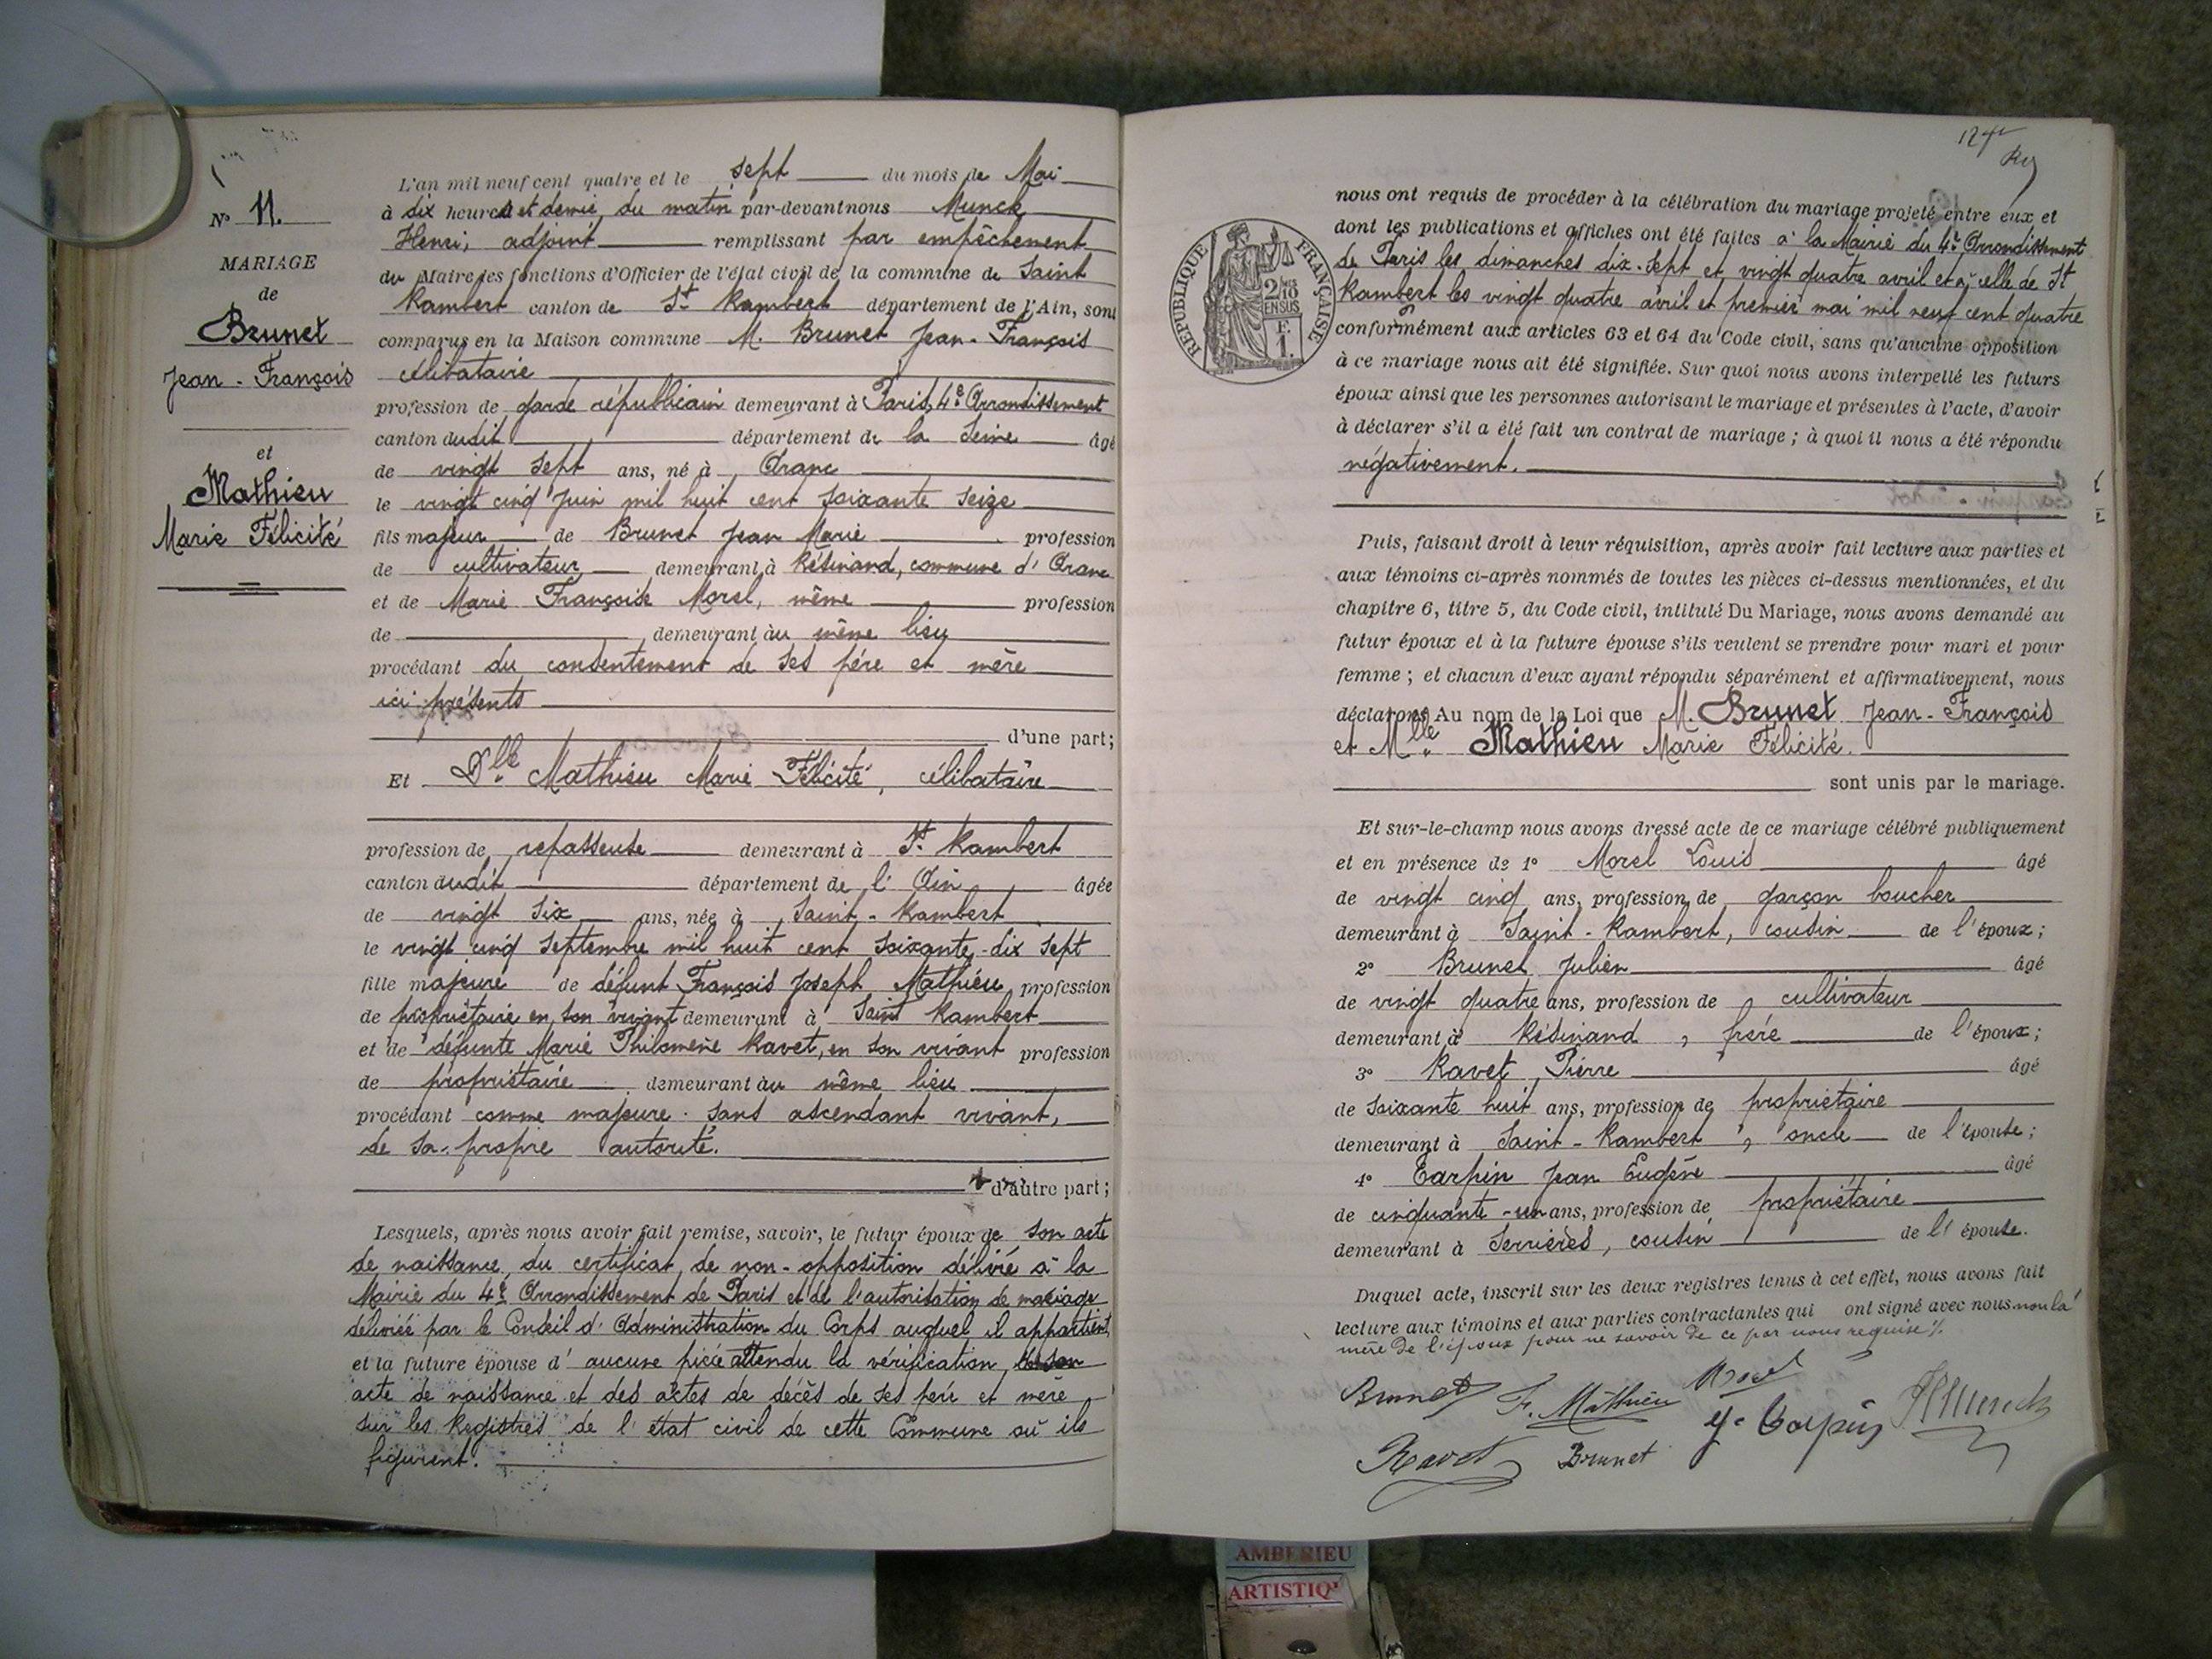 N° 11.
MARIAGE
de
Brunet
Jean-François
et
Mathieu
Marie Félicité
L'an mil neuf cent quatre et le sept du mois de Mai
à dix heures et demie, du matin par-devant nous Munck
Henri, adjoint remplissant par empêchement
du Maire les fonctions d'Officier de l'état civil de la commune de Saint
Rambert canton de St Rambert département de l'Ain, sont
comparus en la Maison commune M. Brunet Jean-François
célibataire
profession de garde républicain demeurant à Paris, 4e Arrondissement
canton dudit département de la Seine âgé
de vingt sept ans, né à Aranc
le vingt cinq Juin mil huit cent soixante seize
fils majeur de Brunet Jean Marie profession
de cultivateur demeurant à Résinand, commune d'Aranc
et de Marie Françoise Morel, même profession
de demeurant au même lieu
procédant du consentement de ses père et mère
ici présents
d'une part;
Et Dlle Mathieu Marie Félicité, célibataire
profession de repasseuse demeurant à St Rambert
canton dudit département de l'Ain âgée
de vingt six ans, née à Saint-Rambert
le vingt cinq septembre mil huit cent soixante-dix sept
fille majeure de défunt François Joseph Mathieu profession
de propriétaire en son vivant demeurant à Saint Rambert
et de défunte Marie Philomène Ravet, en son vivant profession
de propriétaire demeurant au même lieu
procédant comme majeure sans ascendant vivant,
de sa propre autorité.
d'autre part;
Lesquels, après nous avoir fait remise, savoir, le futur époux de son acte
de naissance, du certificat de non-opposition délivré à la
Mairie du 4e Arrondissement de Paris et de l'autorisation de mariage
délivrée par le Conseil d'Administration du Corps auquel il appartient
et la future épouse d'aucune pièce attendu la vérification de son
acte de naissance et des actes de décès de ses père et mère
sur les Registres de l'état civil de cette Commune où ils
figurent.
nous ont requis de procéder à la célébration du mariage projeté entre eux et
dont les publications et affiches ont été faites à la Mairie du 4e Arrondissement
de Paris les dimanches dix-sept et vingt quatre avril et à celle de St
Rambert les vingt quatre avril et premier mai mil neuf cent quatre
conformément aux articles 63 et 64 du Code civil, sans qu'aucune opposition
à ce mariage nous ait été signifiée. Sur quoi nous avons interpellé les futurs
époux ainsi que les personnes autorisant le mariage et présentes à l'acte, d'avoir
à déclarer s'il a été fait un contrat de mariage; à quoi il nous a été répondu
négativement.
RÉPUBLIQUE FRANÇAISE
2/10
EN SUS
F.
1.
Puis, faisant droit à leur réquisition, après avoir fait lecture aux parties et
aux témoins ci-après nommés de toutes les pièces ci-dessus mentionnées, et du
chapitre 6, titre 5, du Code civil, intitulé Du Mariage, nous avons demandé au
futur époux et à la future épouse s'ils veulent se prendre pour mari et pour
femme; et chacun d'eux ayant répondu séparément et affirmativement, nous
déclarons Au nom de la Loi que M. Brunet Jean-François
et Mlle Mathieu Marie Félicité.
sont unis par le mariage.
Et sur-le-champ nous avons dressé acte de ce mariage célébré publiquement
et en présence de 1° Morel Louis âgé
de vingt cinq ans, profession de garçon boucher
demeurant à Saint-Rambert, cousin de l'époux;
2° Brunet Julien âgé
de vingt quatre ans, profession de cultivateur
demeurant à Résinand, frère de l'époux;
3° Ravet Pierre âgé
de soixante huit ans, profession de propriétaire
demeurant à Saint-Rambert, oncle de l'épouse;
4° Tarpin Jean Eugène âgé
de cinquante-un ans, profession de propriétaire
demeurant à Serrières, cousin de l'épouse.
Duquel acte, inscrit sur les deux registres tenus à cet effet, nous avons fait
lecture aux témoins et aux parties contractantes qui ont signé avec nous non la
mère de l'époux pour ne savoir de ce par nous requise %.
Brunet F. Mathieu Morel
Tarpin HMunck
Ravet Brunet
AMBERIEU
ARTISTIQ